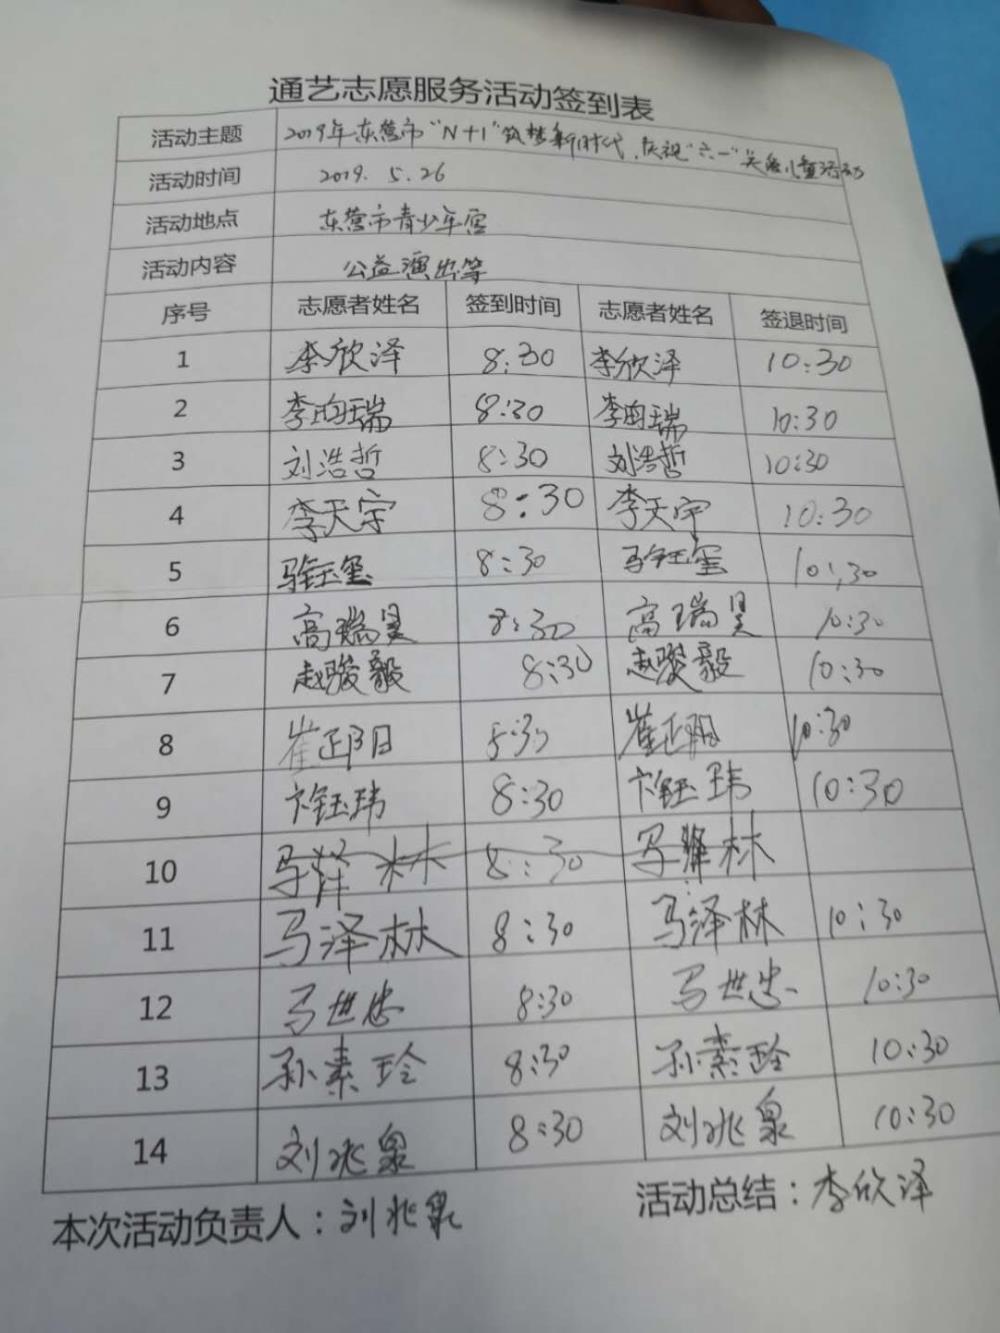 通艺志愿服务活动签到表
活动主题 2019年东营市“N+1”筑梦新时代,庆祝“六一”关爱儿童活动
活动时间 2019. 5. 26
活动地点 东营市青少年宫
活动内容 公益演出等
序号 志愿者姓名 签到时间 志愿者姓名 签退时间
1 李欣泽 8:30 李欣泽 10:30
2 李昀瑞 8:30 李昀瑞 10:30
3 刘浩哲 8:30 刘浩哲 10:30
4 李天宇 8:30 李天宇 10:30
5 8:30 10:30
6 高瑞昊 8:30 高瑞昊 10:30
7 赵骏毅 8:30 赵骏毅 10:30
8 崔正阳 8:30 崔正阳 10:30
9 卞钰玮 8:30 卞钰玮 10:30
10 马泽林 8:30 马泽林
11 马泽林 8:30 马泽林 10:30
12 马世忠 8:30 马世忠 10:30
13 孙素玲 8:30 孙素玲 10:30
14 刘兆泉 8:30 刘兆泉 10:30
本次活动负责人:刘兆泉 活动总结:李欣泽